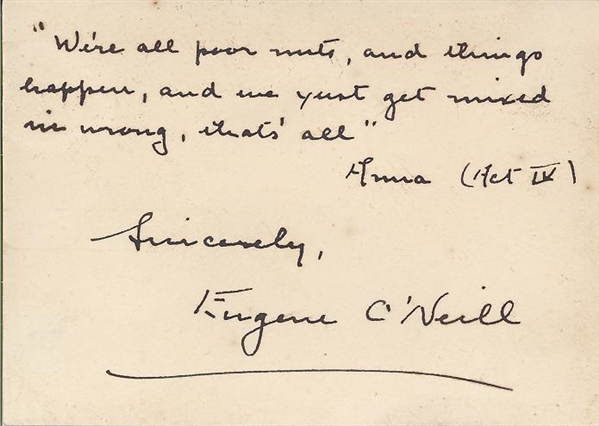 "We're all poor nuts, and things
happen, and we yust get mixed
in wrong, that's all"
Anna (Act IV)
Sincerely,
Eugene O'Neill